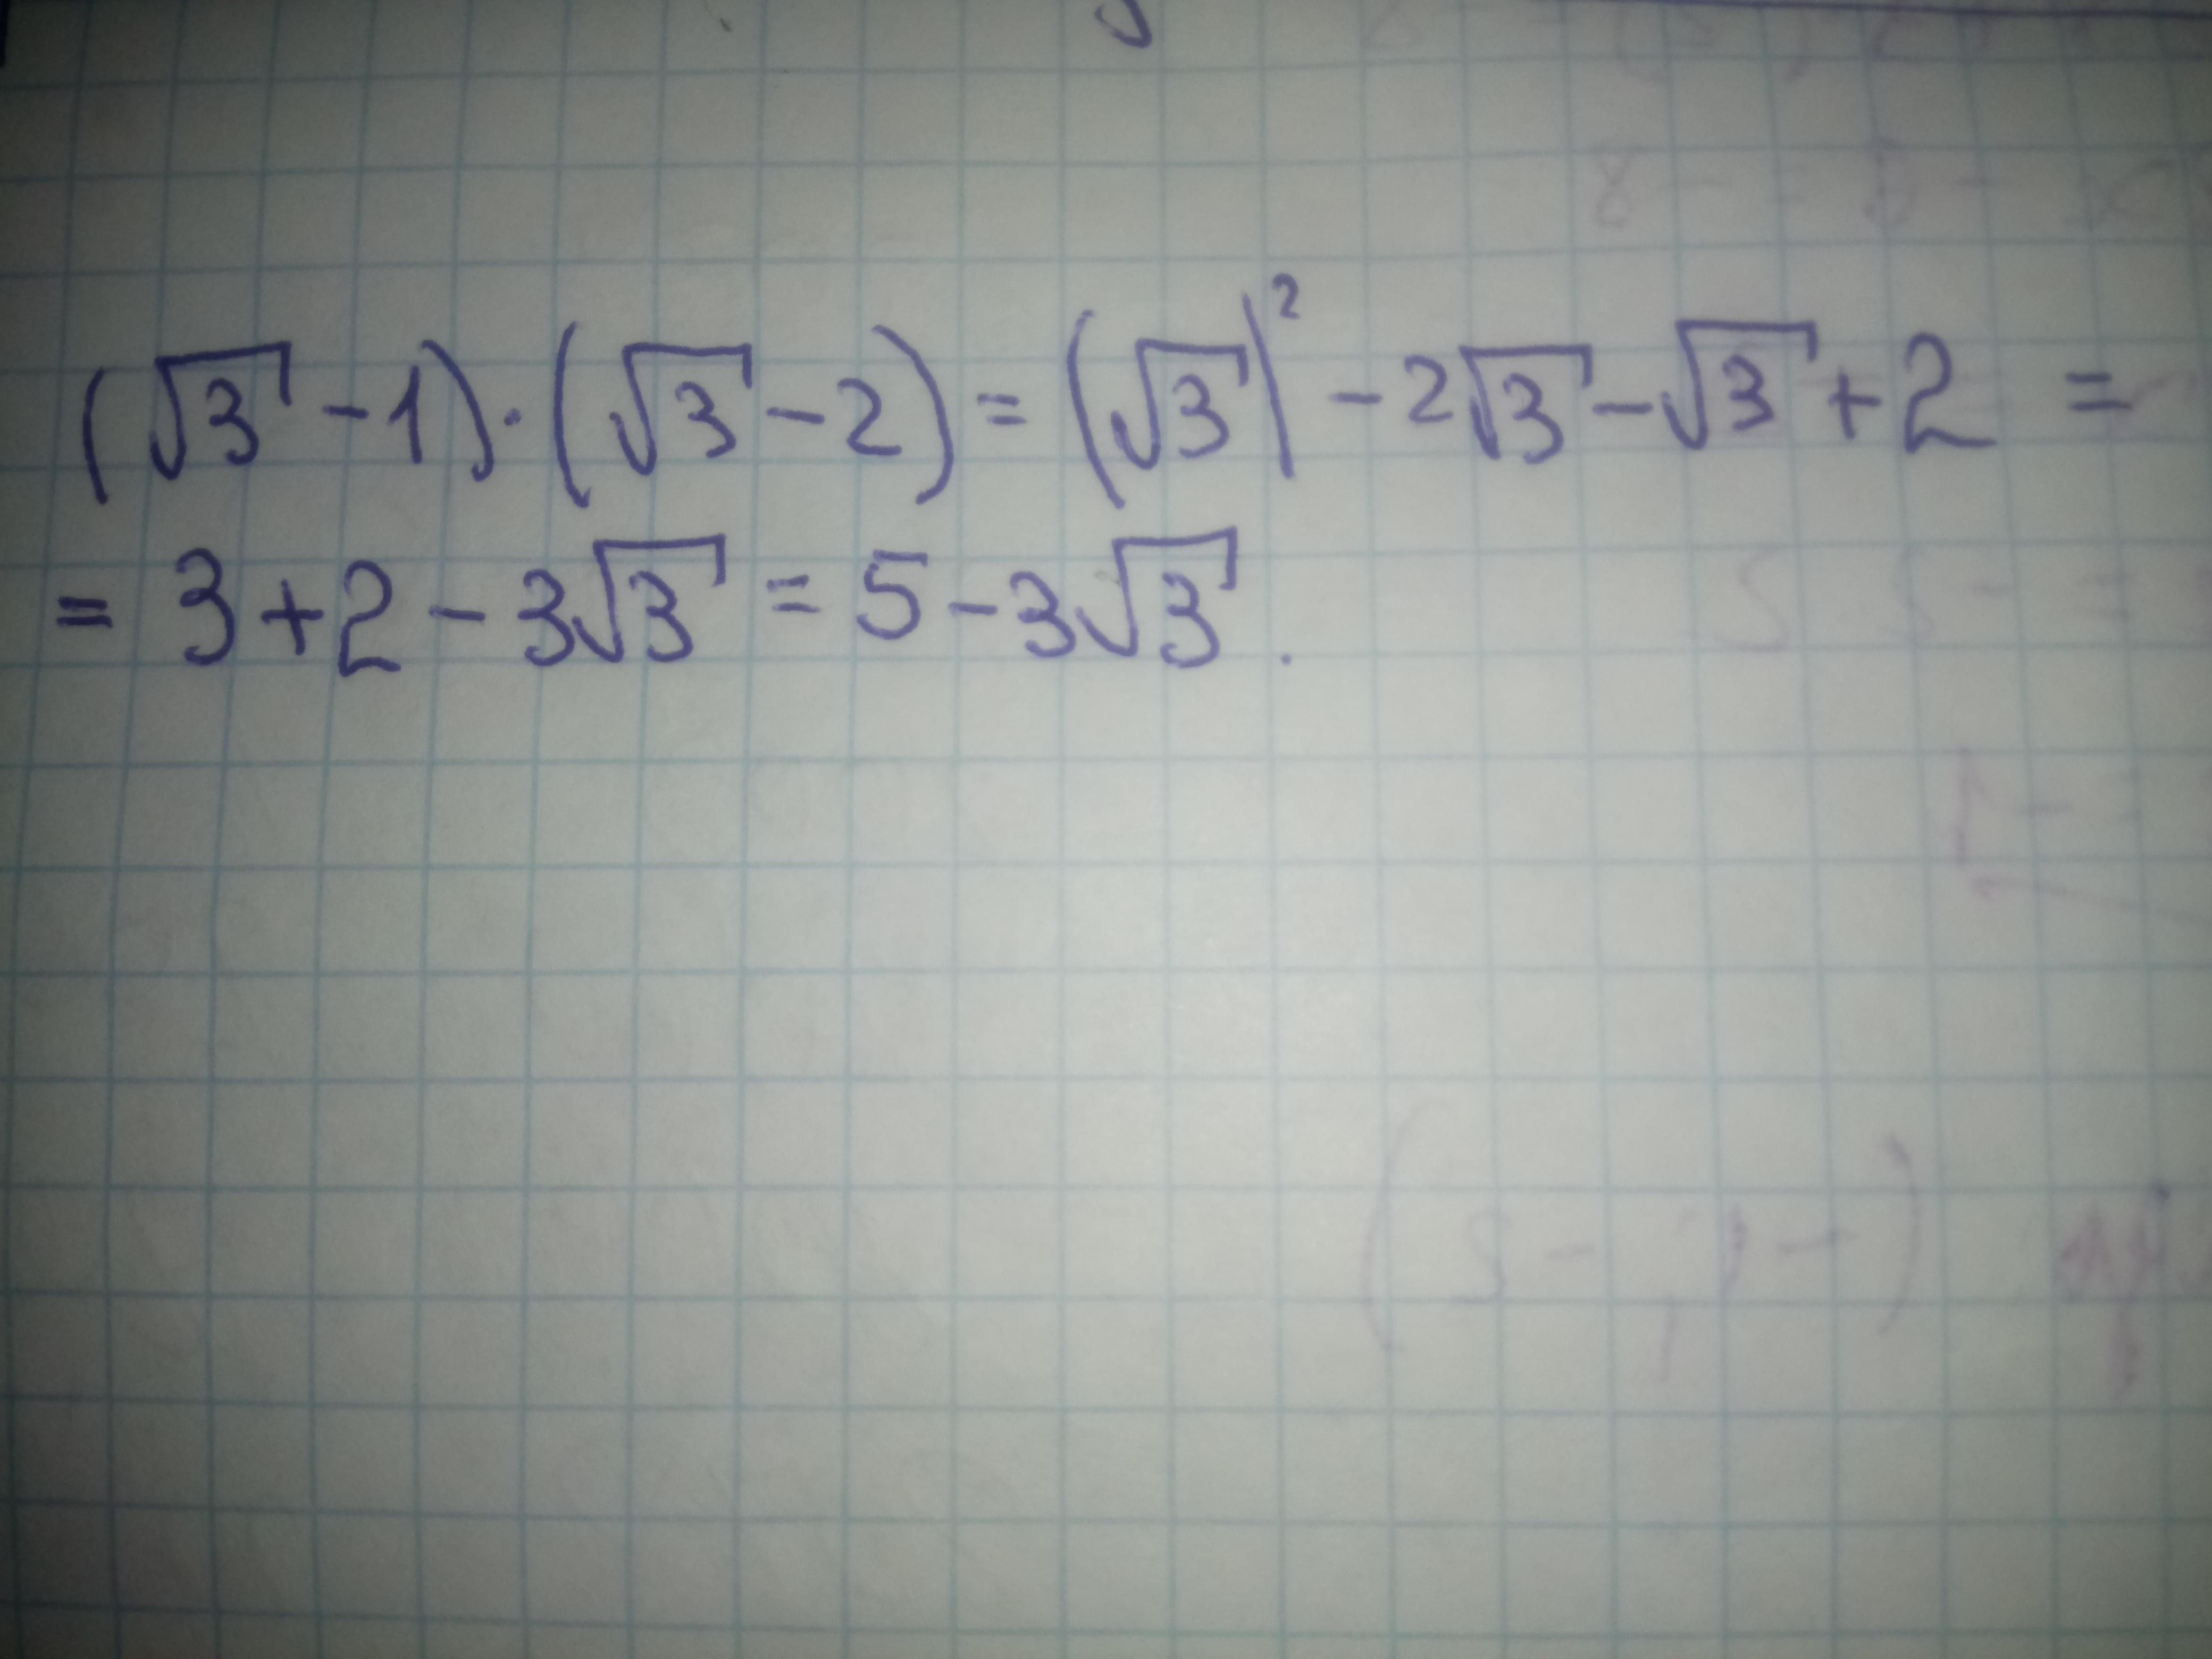 (√3 -1)·(√3 -2) = (√3)² - 2√3 - √3 + 2 =
= 3 + 2 - 3√3 = 5 - 3√3 .